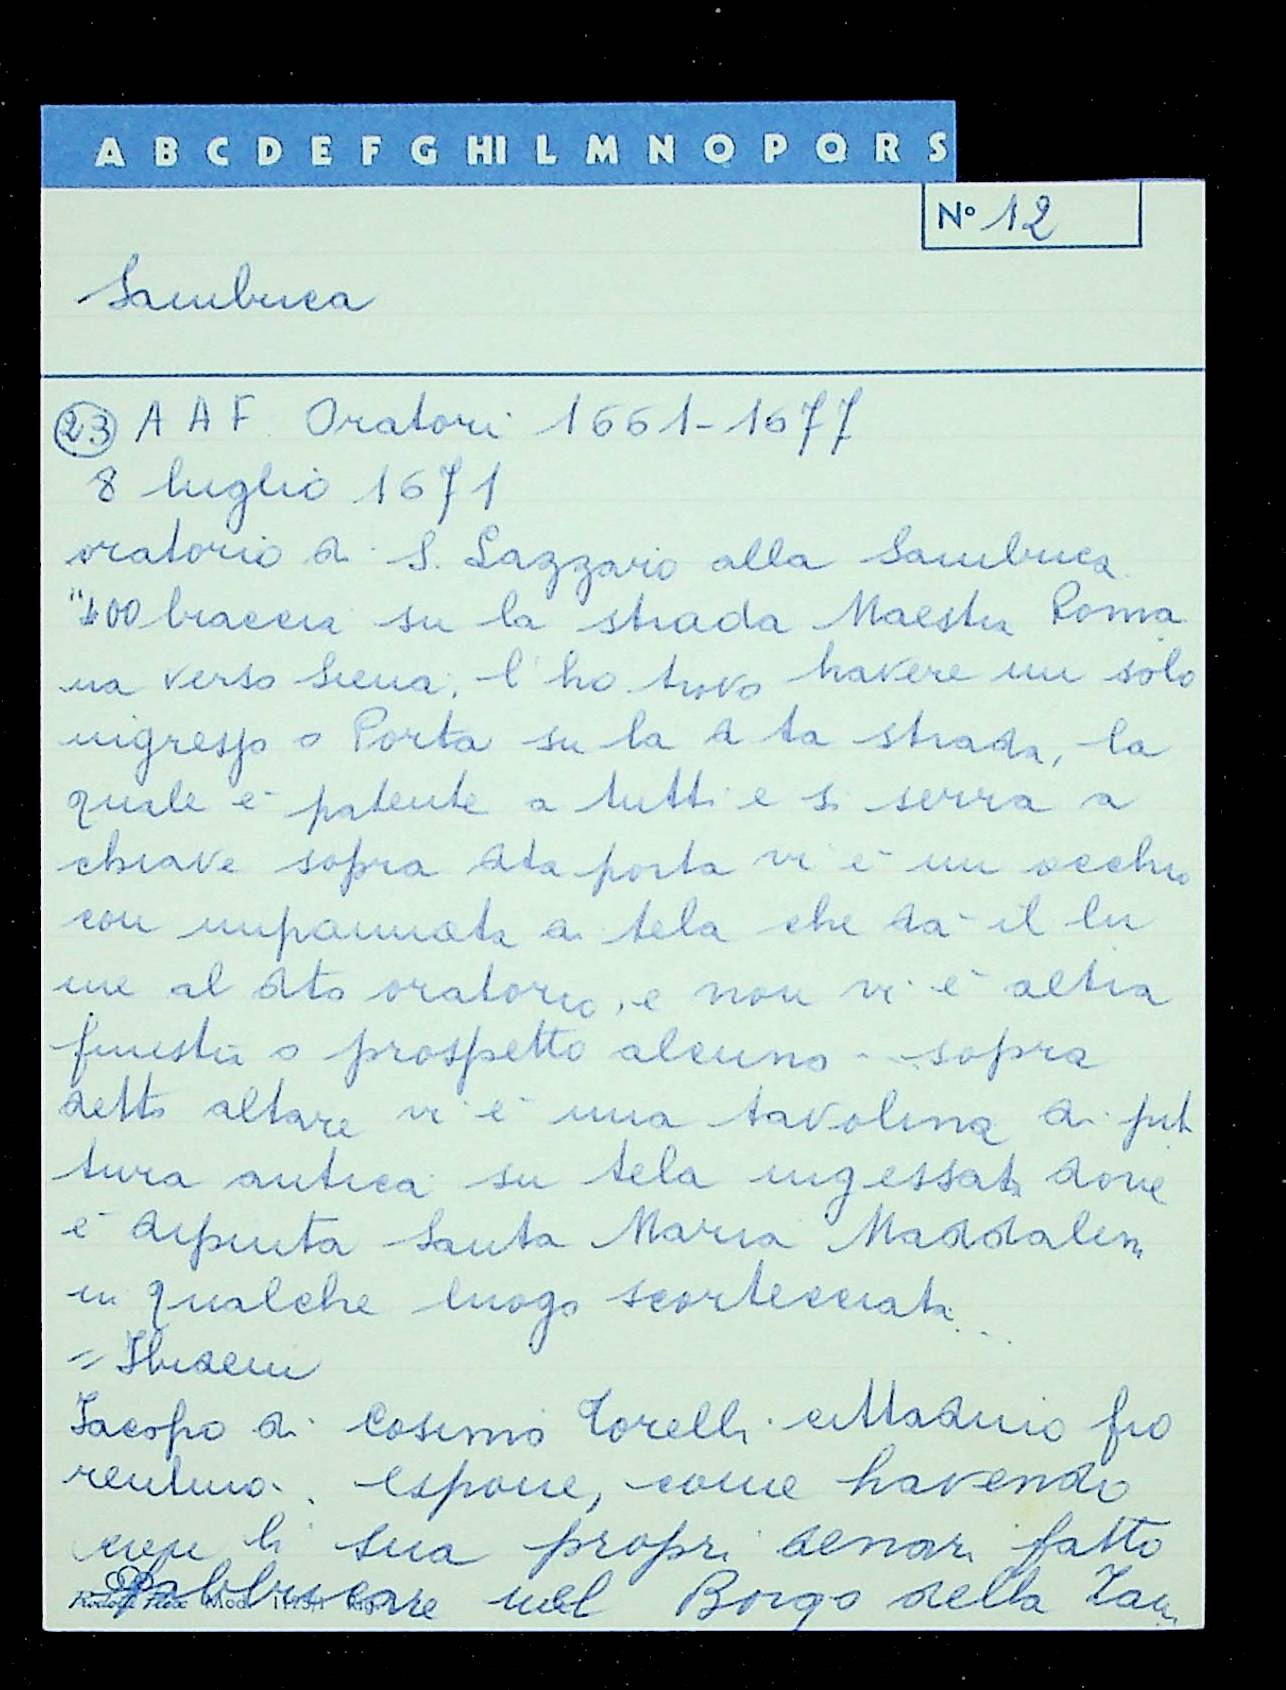 A B C D E F G HI L M N O P Q R S
Nº 12
Sambuca
23 A A F. Oratori 1661-1677
8 luglio 1671
oratorio di S. Lazzaro alla Sambuca
"400 braccia su la strada Maestra Roma
na verso Siena, l'ho trovo havere un solo
ingresso o Porta su la d ta strada, la
quale è patente a tutti e si serra a
chiave sopra dta porta vi è un occhio
con impannata di tela che dà il lu
me al dto oratorio, e non vi è altra
finestra o prospetto alcuno - sopra
detto altare vi è una tavolina di pit
tura antica su tela ingessata dove
è dipinta Santa Maria Maddalena
in qualche luogo scortecciata...
= Ibidem
Jacopo di Cosimo Torelli cittadino fio
rentino. espone, come havendo
li sua propri denari fatto
fabbricare nel Borgo della Sam